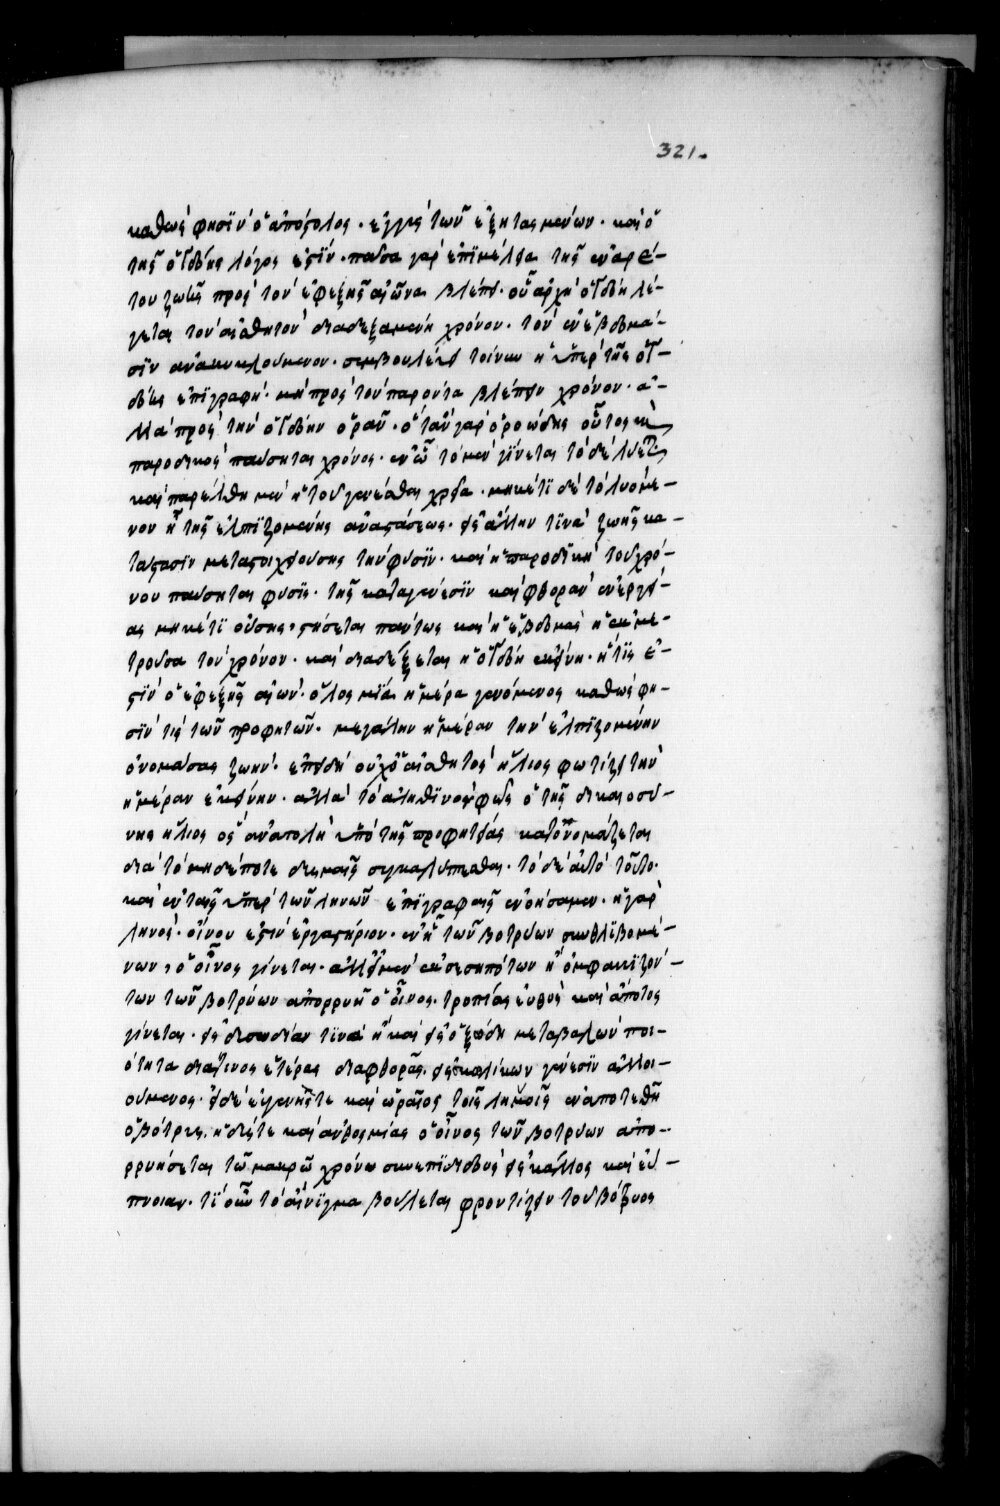 321.
καθὼς φησὶν ὁ ἀπόστολος. ἐγγὺς τῶν ἐξητασμένων. καὶ ὁ
τῆς ὀγδόης λόγος ἐστίν. πᾶσα γὰρ ἐπιμέλεια τῆς ἐναρέ-
του ζωῆς πρὸς τὸν ἐφεξῆς αἰῶνα βλέπει. οὗ ἀρχὴ ὀγδόη λέ-
γεται τὸν αἰσθητὸν διαδεξαμένη χρόνον. τὸν ἐν ἑβδομά-
σιν ἀνακυκλούμενον. συμβουλεύει τοίνυν ἡ ὑπὲρ τῆς ὀγ-
δόης ἐπιγραφή. μὴ πρὸς τὸν παρόντα βλέπειν χρόνον. ἀ-
λλὰ πρὸς τὴν ὀγδόην ὁρᾶν. ὅταν γὰρ ὁ ῥοώδης οὗτος καὶ
παροδικὸς παύσηται χρόνος. ἐν ᾧ τὸ μὲν γίνεται τὸ δὲ λύεται
καὶ παρέλθη μὲν ἡ τοῦ γενέσθαι χρεία. μηκέτι δὲ τὸ λυόμε-
νον ᾖ τῆς ἐλπιζομένης ἀναστάσεως. εἰς ἄλλην τινὰ ζωῆς κα-
τάστασιν μεταστοιχειούσης τὴν φύσιν. καὶ ἡ παροδικὴ τοῦ χρό-
νου παύσηται φύσις. τῆς κατὰ γένεσιν καὶ φθορὰν ἐνεργεί-
ας μηκέτι οὔσης, στήσεται πάντως καὶ ἡ ἑβδομὰς ἡ ἐκμε-
τροῦσα τὸν χρόνον. καὶ διαδέξεται ἡ ὀγδόη ἐκείνη. ἥτις ἐ-
στὶν ὁ ἐφεξῆς αἰών. ὅλος μία ἡμέρα γενόμενος καθώς φη-
σίν τις τῶν προφητῶν. μεγάλην ἡμέραν τὴν ἐλπιζομένην
ὀνομάσας ζωήν. ἐπειδὴ οὐχ ὁ αἰσθητὸς ἥλιος φωτίζει τὴν
ἡμέραν ἐκείνην. ἀλλὰ τὸ ἀληθινὸν φῶς ὁ τῆς δικαιοσύ-
νης ἥλιος ὃς ἀνατολὴ ὑπὸ τῆς προφητείας κατονομάζεται
διὰ τὸ μηδέποτε δυσμαῖς συγκαλύπτεσθαι. τὸ δὲ αὐτὸ τοῦτο.
καὶ ἐν ταῖς ὑπὲρ τῶν ληνῶν ἐπιγραφαῖς ἐνοήσαμεν. ἡ γὰρ
ληνὸς. οἴνου ἐστὶν ἐργαστήριον. ἐν ᾗ τῶν βοτρύων συνθλιβομέ-
νων, ὁ οἶνος γίνεται. ἀλλ' εἰ μὲν ἐκ σεσηπότων ἢ ὀμφακιζόν-
των τῶν βοτρύων ἀπορρυῇ ὁ οἶνος. τροπίας εὐθὺς καὶ ἄποτος
γίνεται. εἰς δυσωδίαν τινὰ ἢ καὶ εἰς ὀξώδη μεταβαλὼν ποι-
ότητα διά τινος ἑτέρας διαφθορᾶς. εἰς σκωλήκων γένεσιν ἀλλοι-
ούμενος. εἰ δὲ εὐγενής τε καὶ ὡραῖος τοῖς ληνοῖς ἐναποτεθῇ
ὁ βότρυς. ἡδύς τε καὶ ἀνθοσμίας ὁ οἶνος τῶν βοτρύων ἀπο-
ρρυήσεται τῷ μακρῷ χρόνῳ συνεπιδιδοὺς εἰς κάλλος καὶ εὔ-
πνοιαν. τί οὖν τὸ αἴνιγμα βούλεται φροντίζειν τοῦ βότρυος